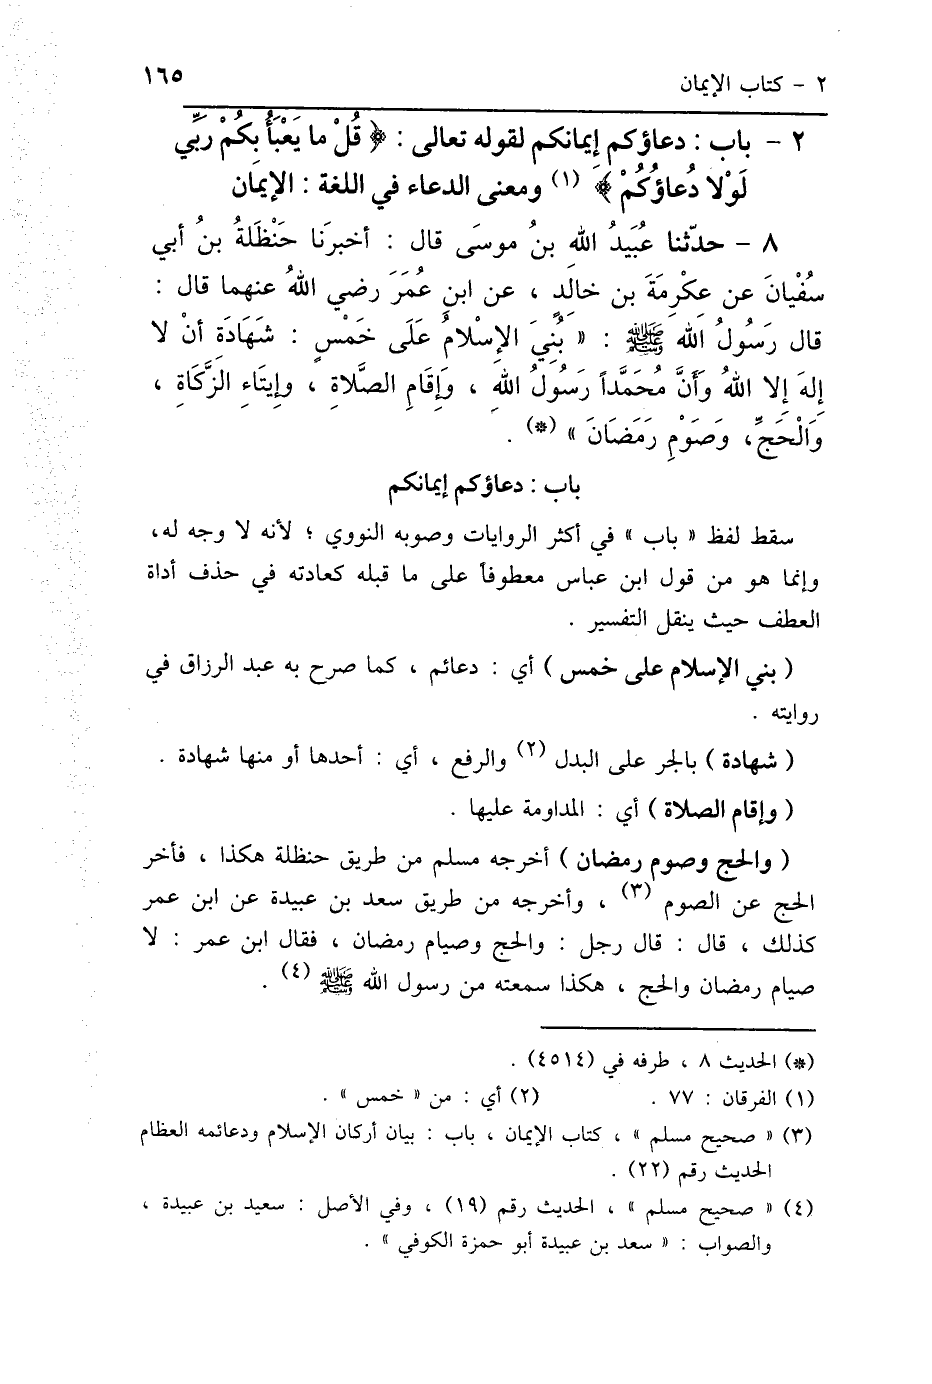 ٢ - كتاب الإيمان ١٦٥
٢ - باب : دعاؤكم إيمانكم لقوله تعالى : ﴿ قُلْ ما يَعْبَأُ بِكُمْ رَبِّي
لَوْلا دُعاؤُكُمْ ﴾ (١) ومعنى الدعاء في اللغة : الإيمان
٨ - حدّثنا عُبَيدُ اللهِ بنُ موسَى قال : أخبرَنا حَنْظَلَةُ بنُ أبي
سُفْيانَ عن عِكْرِمَةَ بن خالدٍ ، عن ابنِ عُمَرَ رضي اللهُ عنهما قال :
قال رَسُولُ الله ﷺ : « بُنِيَ الإسْلامُ عَلَى خَمْسٍ : شَهَادَةِ أنْ لا
إلهَ إلا اللهُ وَأَنَّ مُحَمَّداً رَسُولُ اللهِ ، وَإِقَامِ الصَّلاةِ ، وإيتَاءِ الزَّكَاةِ ،
وَالْحَجِّ، وَصَوْمِ رَمَضَانَ » (*) .
باب : دعاؤكم إيمانكم
سقط لفظ « باب » في أكثر الروايات وصوبه النووي ؛ لأنه لا وجه له،
وإنما هو من قول ابن عباس معطوفاً على ما قبله كعادته في حذف أداة
العطف حيث ينقل التفسير .
( بني الإسلام على خمس ) أي : دعائم ، كما صرح به عبد الرزاق في
روايته .
( شهادة ) بالجر على البدل (٢) والرفع ، أي : أحدها أو منها شهادة .
( وإقام الصلاة ) أي : المداومة عليها .
( والحج وصوم رمضان ) أخرجه مسلم من طريق حنظلة هكذا ، فأخر
الحج عن الصوم (٣) ، وأخرجه من طريق سعد بن عبيدة عن ابن عمر
كذلك ، قال : قال رجل : والحج وصيام رمضان ، فقال ابن عمر : لا
صيام رمضان والحج ، هكذا سمعته من رسول الله ﷺ (٤) .
(*) الحديث ٨ ، طرفه في (٤٥١٤) .
(١) الفرقان : ٧٧ . (٢) أي : من « خمس » .
(٣) « صحيح مسلم » ، كتاب الإيمان ، باب : بيان أركان الإسلام ودعائمه العظام
الحديث رقم (٢٢) .
(٤) « صحيح مسلم » ، الحديث رقم (١٩) ، وفي الأصل : سعيد بن عبيدة ،
والصواب : « سعد بن عبيدة أبو حمزة الكوفي » .